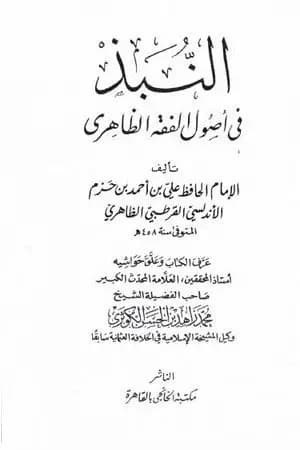 النُّبَذ
في أصول الفقه الظاهري
تأليف
الإمام الحافظ علي بن أحمد بن حزم
الأندلسي القرطبي الظاهري
المتوفى سنة ٤٥٨ هـ
عرّف الكتاب وعلّق حواشيه
أستاذ المحققين، العلامة المحدث الكبير
صاحب الفضيلة الشيخ
محمد زاهد بن الحسن الكوثري
وكيل المشيخة الإسلامية في الخلافة العثمانية سابقا
الناشر
مكتبة الخانجي بالقاهرة